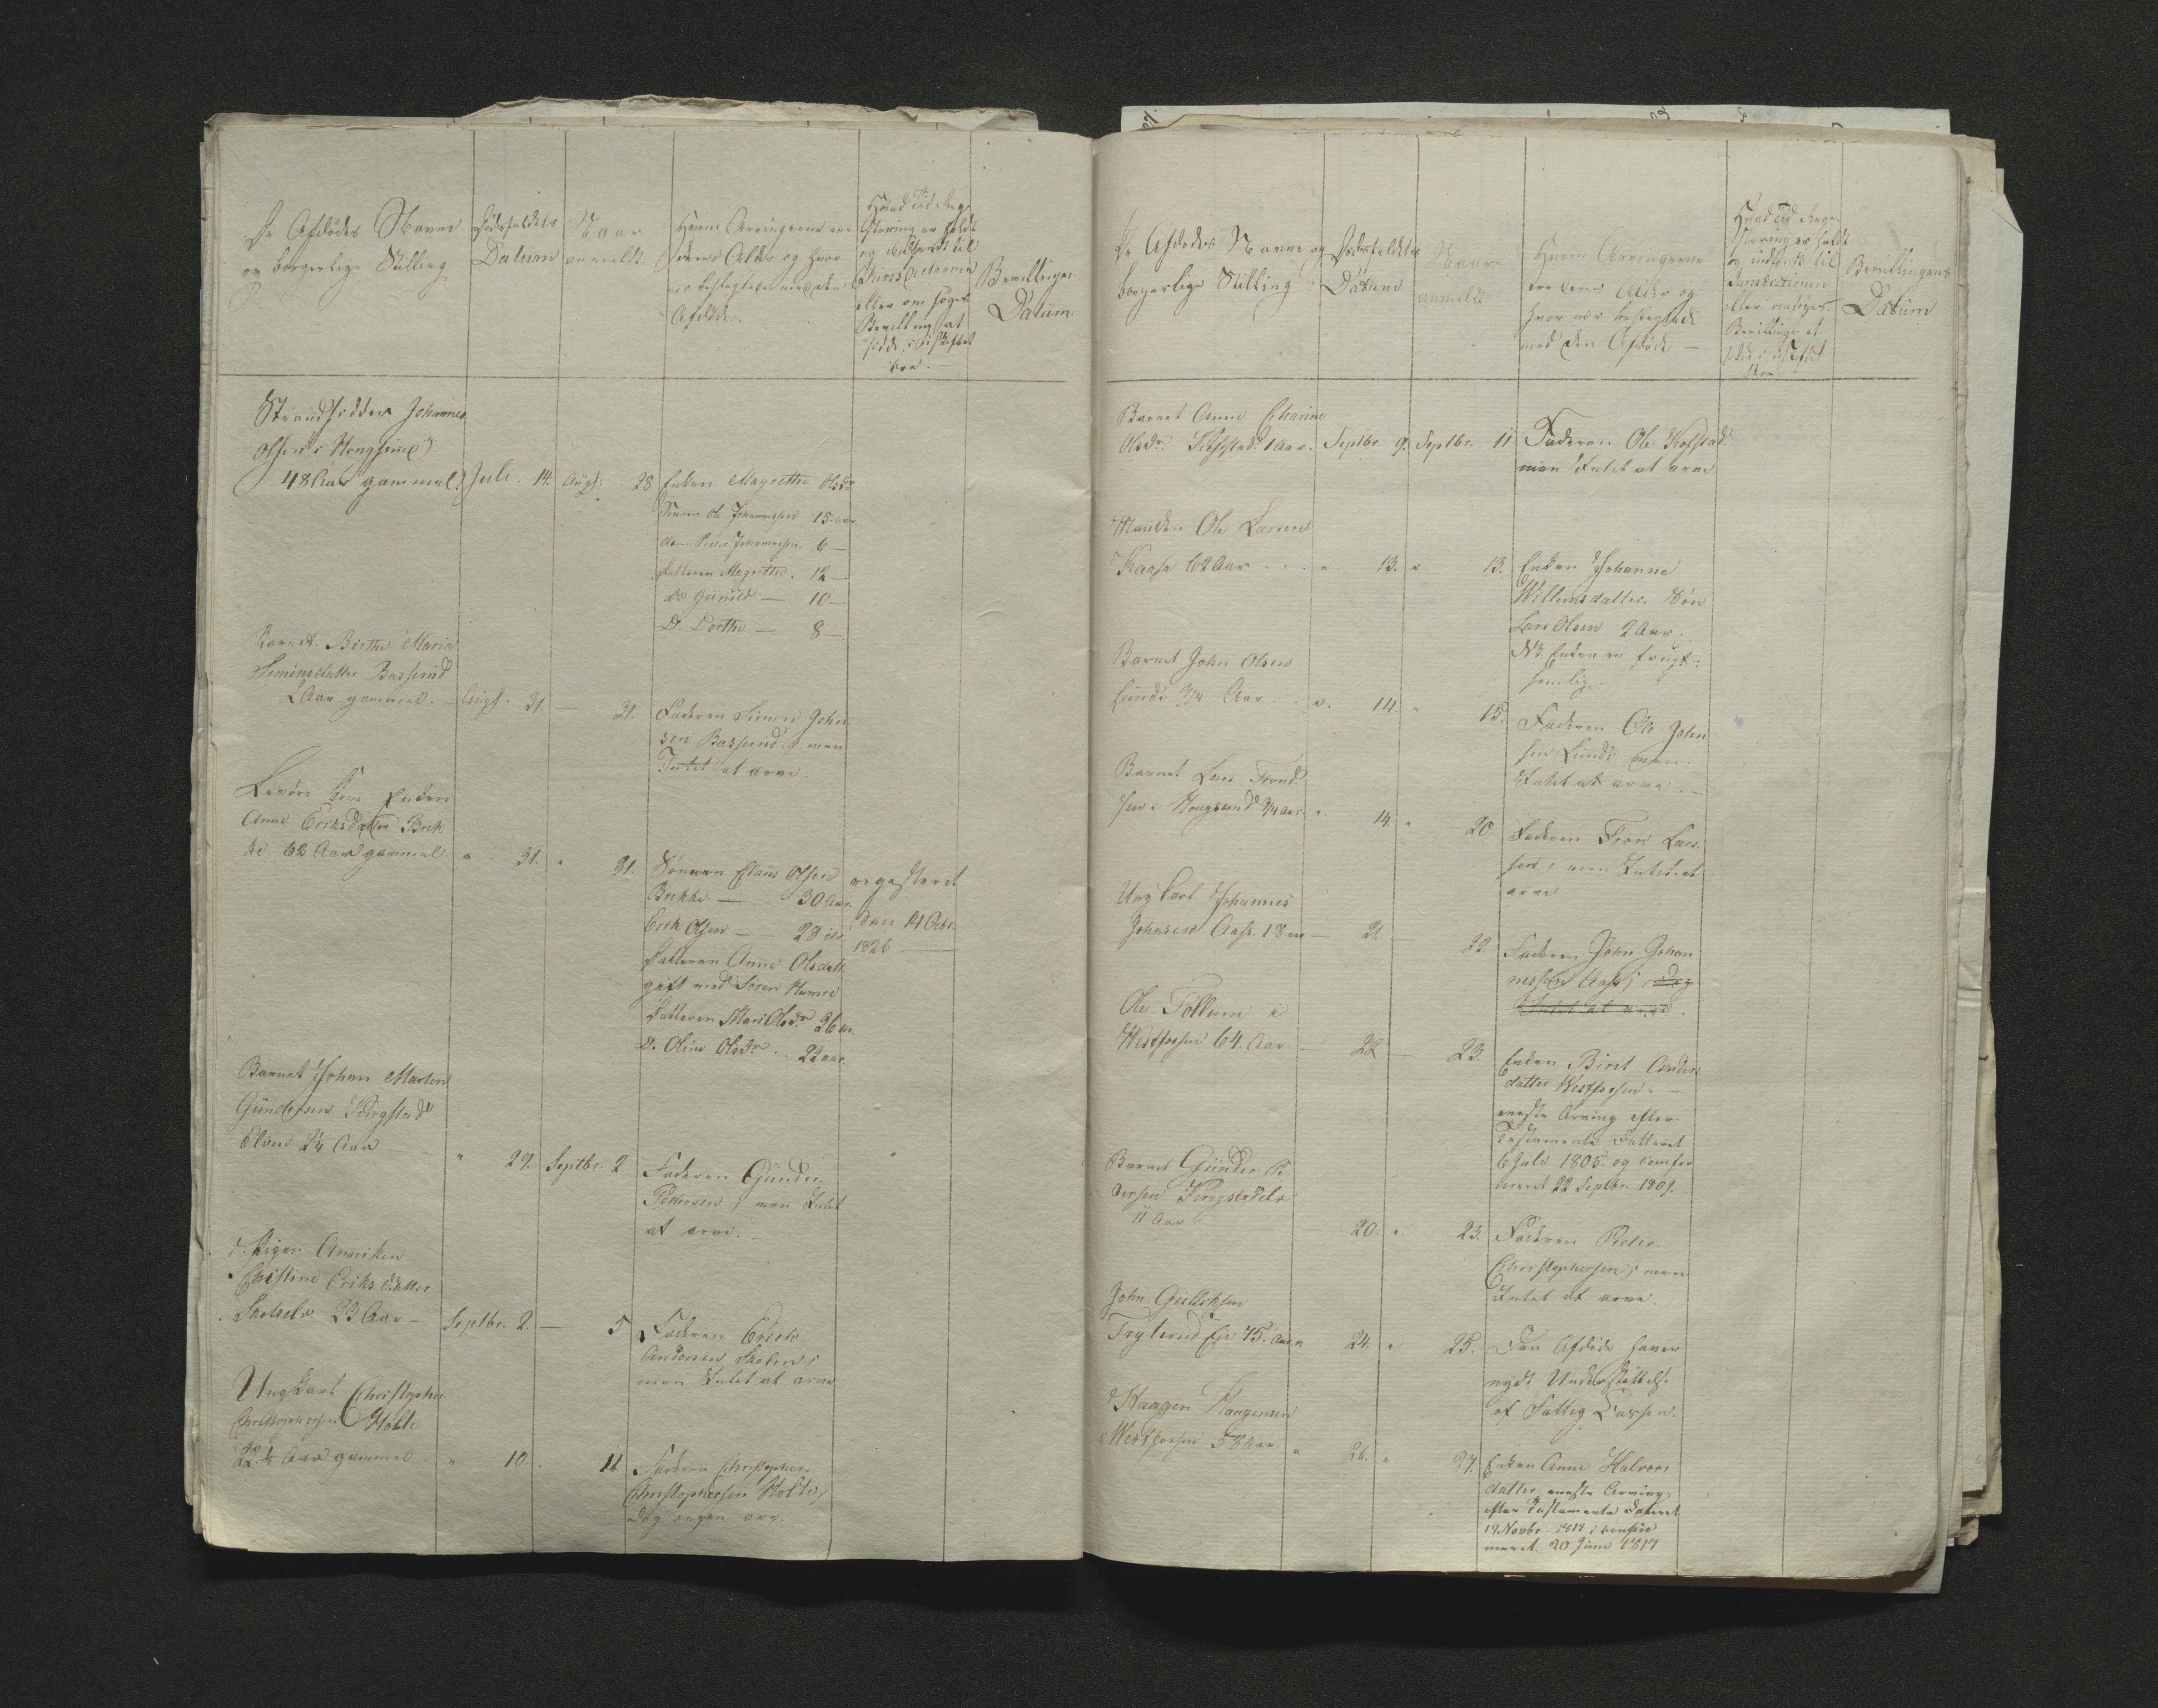 De Afdödes Navne
og borgerlige Stilling
Dödsfaldets
Datum
Naar
anmeldt
Hvem Arvingerne ere
deres Alder og hvor
nær beslægtede med den
Afdöde.
Hvad Tid Regi-
stering er holdt
og indsendt til
Jurisdictionen
eller om söges
Bevilling at
sidde i uskiftet
Boe.
Bevillingens
Datum
Strandsidder Johannes
Olsen i Hougsund
48 Aar gammel
Juli 14.
Augs. 28
Enken Magrethe Olsdr
Sönen Ole Johannessen 15 aar
do Peder Johannesen 6 —
Datteren Magrethe. 12 —
do Gunild — 10 —
D. Dorthe — 8 —
Barnet Birthe Maria
Simensdatter Basserud
2 Aar gammel.
Augs. 31.
— 31.
Faderen Simen John-
sen Basserud; men
Intet at arve.
Enken
Anne Eriksdatter Brek-
ke 62 Aar gammel.
" 31.
" 31.
Sönnen Claus Olsen
Brekke — 30 Aar.
Erik Olsen — 28 do
Datteren Anne Olsdatt.
gift med Sören Hamre
Datteren Mari Olsdr 26 aar.
D. Oline Olsdr 22 aar.
registeret
den 14 Octbr.
1826
Barnet Johan Marten
Gundersen Kingstad
Elven 2¼ Aar
" 29.
Septbr. 2
Faderen Gunder
Pedersen; men Intet
at arve.
Pigen Anniken
Christine Eriksdatter
Skotselv 23 Aar —
Septbr. 2.
— 5
Faderen Erich
Andersen Skolen;
men Intet at arve
Ungkarl Christopher
Christophersen Holte
22½ Aar gammel
" 10.
11
Faderen Christopher
Christophersen Holte;
dog ingen arv.
De Afdödes Navne og
borgerlige Stilling
Dödsfaldets
Datum
Naar
anmeldt
Hvem Arvingerne
ere deres Alder og
hvor nær beslægtede
med den Afdöde —
Hvad Tid Regi-
stering er holdt
og indsendt til
Jurisdictionen
eller om söges
Bevilling at
sidde i uskiftet
Boe.
Bevillingens
Datum
Barnet Anne Charine
Olsdr. Kolsstad 1 Aar.
Septbr. 9.
Septbr. 11
Faderen Ole Kolstad
men Intet at arve
Manden Ole Larsen
Kaasa 62 Aar
" 13.
" 13.
Enken Johanne
Willumsdatter. Sön
Lars Olsen 2 Aar.
NB Enken er frugt-
sommelig.
Barnet John Olsen
Lunde ¾ Aar
" 14.
" 15.
Faderen Ole John-
sen Lunde men
Intet at arve.
Barnet Lars Trond-
sen i Hougsund ¾ Aar.
" 14
" 20
Faderen Tron Lars-
sen; men Intet at
arve
Ungkarl Johannes
Johnsen Aass. 18 aar
— 21.
— 22
Faderen John Johan-
nessen Aass; dog
Intet at arve.
Ole Follum i
Westfossen 64. Aar.
— 22
— 23.
Enken Biret Anders-
datter Westfossen. —
eneste Arving efter
Testamente Datteret
6 Juli 1805. og confir-
meret 22 Septbr. 1809.
Barnet Gunder Pe-
dersen Kingstadelv
11 Aar
— 20.
" 23.
Faderen Peder
Christophersen; men
Intet at arve.
John Gulliksen
Fryterud Eje 75. Aar
" 24.
" 25.
Den Afdöde haver
nydt Understöttelse
af Fattig Cassen.
Haagen Haagensen
Westfossen 58 Aar
" 26.
" 27.
Enken Anne Halvors-
datter eneste Arving
efter Testamente dateret
19 Novbr. 1812; confir-
meret 20 Juni 1817